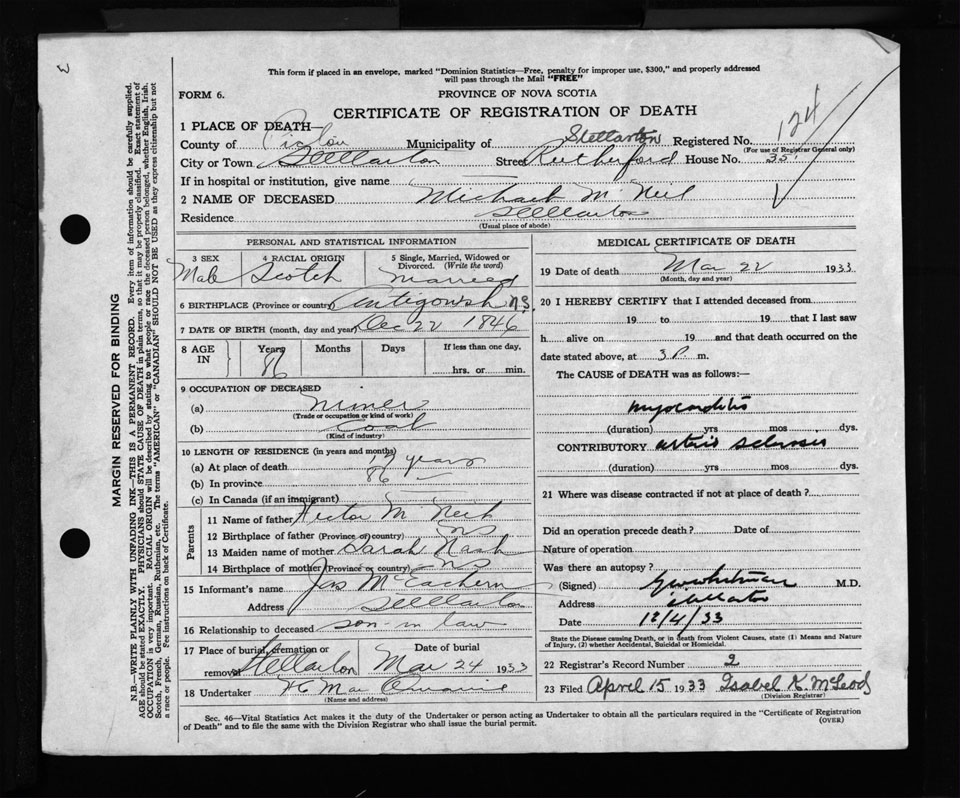 This form if placed in an envelope, marked "Dominion Statistics—Free, penalty for improper use, $300," and properly addressed
will pass through the Mail "FREE"
FORM 6.
PROVINCE OF NOVA SCOTIA
CERTIFICATE OF REGISTRATION OF DEATH
124
1 PLACE OF DEATH—
County of Pictou Municipality of Stellarton Registered No.
(For use of Registrar General only)
City or Town Stellarton Street Rutherford House No. 351
If in hospital or institution, give name
2 NAME OF DECEASED Michael McNeil
Residence Stellarton
(Usual place of abode)
MARGIN RESERVED FOR BINDING
N.B.—WRITE PLAINLY WITH UNFADING INK—THIS IS A PERMANENT RECORD. Every item of information should be carefully supplied.
AGE should be stated EXACTLY. PHYSICIANS should STATE CAUSE OF DEATH in plain terms, so that it may be properly classified. Exact statement of
OCCUPATION is very important. RACIAL ORIGIN will be described by stating to what people or race the deceased person belonged, whether English, Irish,
Scotch, French, German, Russian, Ruthenian, etc. The terms "AMERICAN" or "CANADIAN" SHOULD NOT BE USED as they express citizenship but not
a race or people. See instructions on back of Certificate.
PERSONAL AND STATISTICAL INFORMATION
3 SEX 4 RACIAL ORIGIN 5 Single, Married, Widowed or
Divorced. (Write the word)
Male Scotch Married
6 BIRTHPLACE (Province or country) Antigonish N.S.
7 DATE OF BIRTH (month, day and year) Dec 22 1846
8 AGE IN Years Months Days If less than one day,
86 hrs. or min.
9 OCCUPATION OF DECEASED
(a) Miner
(Trade or occupation or kind of work)
(b) Coal
(Kind of industry)
10 LENGTH OF RESIDENCE (in years and months)
(a) At place of death years
(b) In province 86
(c) In Canada (if an immigrant)
Parents
11 Name of father Hector McNeil
12 Birthplace of father (Province or country) NS
13 Maiden name of mother Sarah Nash
14 Birthplace of mother (Province or country) NS
15 Informant's name Jas McEachern
Address Stellarton
16 Relationship to deceased son-in law
17 Place of burial, cremation or Date of burial
removal Stellarton Mar 24 1933
18 Undertaker
(Name and address)
MEDICAL CERTIFICATE OF DEATH
19 Date of death Mar 22 1933
(Month, day and year)
20 I HEREBY CERTIFY that I attended deceased from
19 to 19 that I last saw
h alive on 19 and that death occurred on the
date stated above, at 3 P. m.
The CAUSE of DEATH was as follows:—
myocarditis
(duration) yrs mos dys.
CONTRIBUTORY arterio sclerosis
(duration) yrs mos dys.
21 Where was disease contracted if not at place of death?
Did an operation precede death? Date of
Nature of operation
Was there an autopsy?
(Signed) Whitman M.D.
Address Stellarton
Date 12/4/33
State the Disease causing Death, or in death from Violent Causes, state (1) Means and Nature
of Injury, (2) whether Accidental, Suicidal or Homicidal.
22 Registrar's Record Number 2
23 Filed April 15 1933 Isabel K. McLeod
(Division Registrar)
Sec. 46—Vital Statistics Act makes it the duty of the Undertaker or person acting as Undertaker to obtain all the particulars required in the "Certificate of Registration
of Death" and to file the same with the Division Registrar who shall issue the burial permit. (OVER)